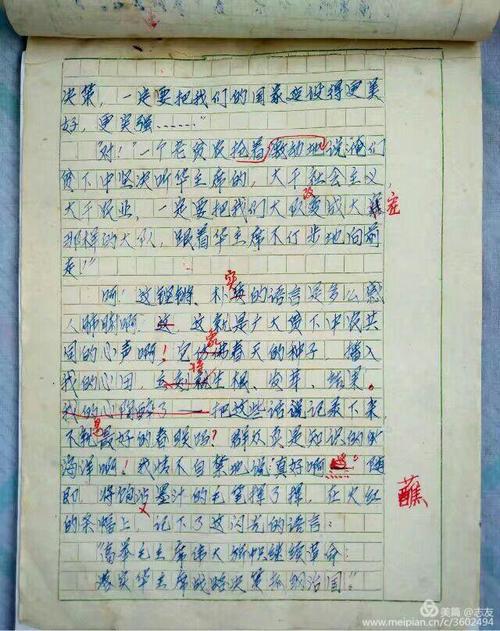 决策，一定要把我们的国家建设得更美
好，更富强……"
"对！"一个老贫农抢着激动地说俺们
贫下中农坚决听华主席的，大干社会主义
大干农业，一定要把我们大队变成大寨
改
寨
那样的大队，跟着华主席不停步地向前
走！"
实
啊！这铿锵、朴实的语言是多么感
人肺腑啊！这 这就是广大贫下中农共
同的心声啊！它仿佛春天的种子，播入
象
我的心田，生根、发芽、结果。
将
我的心陶醉了 把这些话语记录下来
不就是最好的春联吗？群众真是知识的
海洋啊！我情不自禁地说"真好啊 随
即，将饱沾墨汁的毛笔挥了挥，在火红
蘸
的条幅上，记下了这闪光的语言：
"高举毛主席伟大旗帜继续革命
落实华主席战略决策抓纲治国"
美篇 @志友
www.meipian.cn/c/3602494